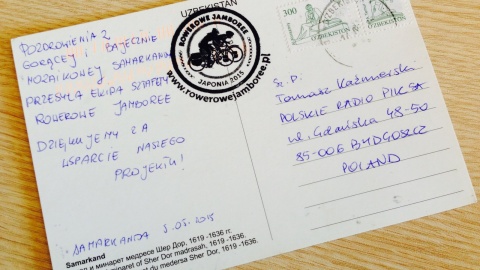 UZBEKISTAN
POZDROWIENIA Z
GORĄCEJ I BAJECZNIE
MOZAIKOWEJ SAMARKANDY
PRZESYŁA EKIPA SZTAFETY
ROWEROWE JAMBOREE
DZIĘKUJEMY ZA
WSPARCIE NASZEGO
PROJEKTU!
SAMARKANDA 5.05.2015
ROWEROWE JAMBOREE
JAPONIA 2015
www.rowerowejamboree.pl
300
O'ZBEKISTON
Sz. P.
Tomasz Kaźmierski
POLSKIE RADIO PIK SA
ul. Gdańska 48-50
85-006 BYDGOSZCZ
POLAND
Samarkand
и минарет медресе Шер Дор, 1619-1636 гг.
minaret of Sher Dor madrasah, 1619-1636.
et du medersa Sher Dor, 1619-1636.